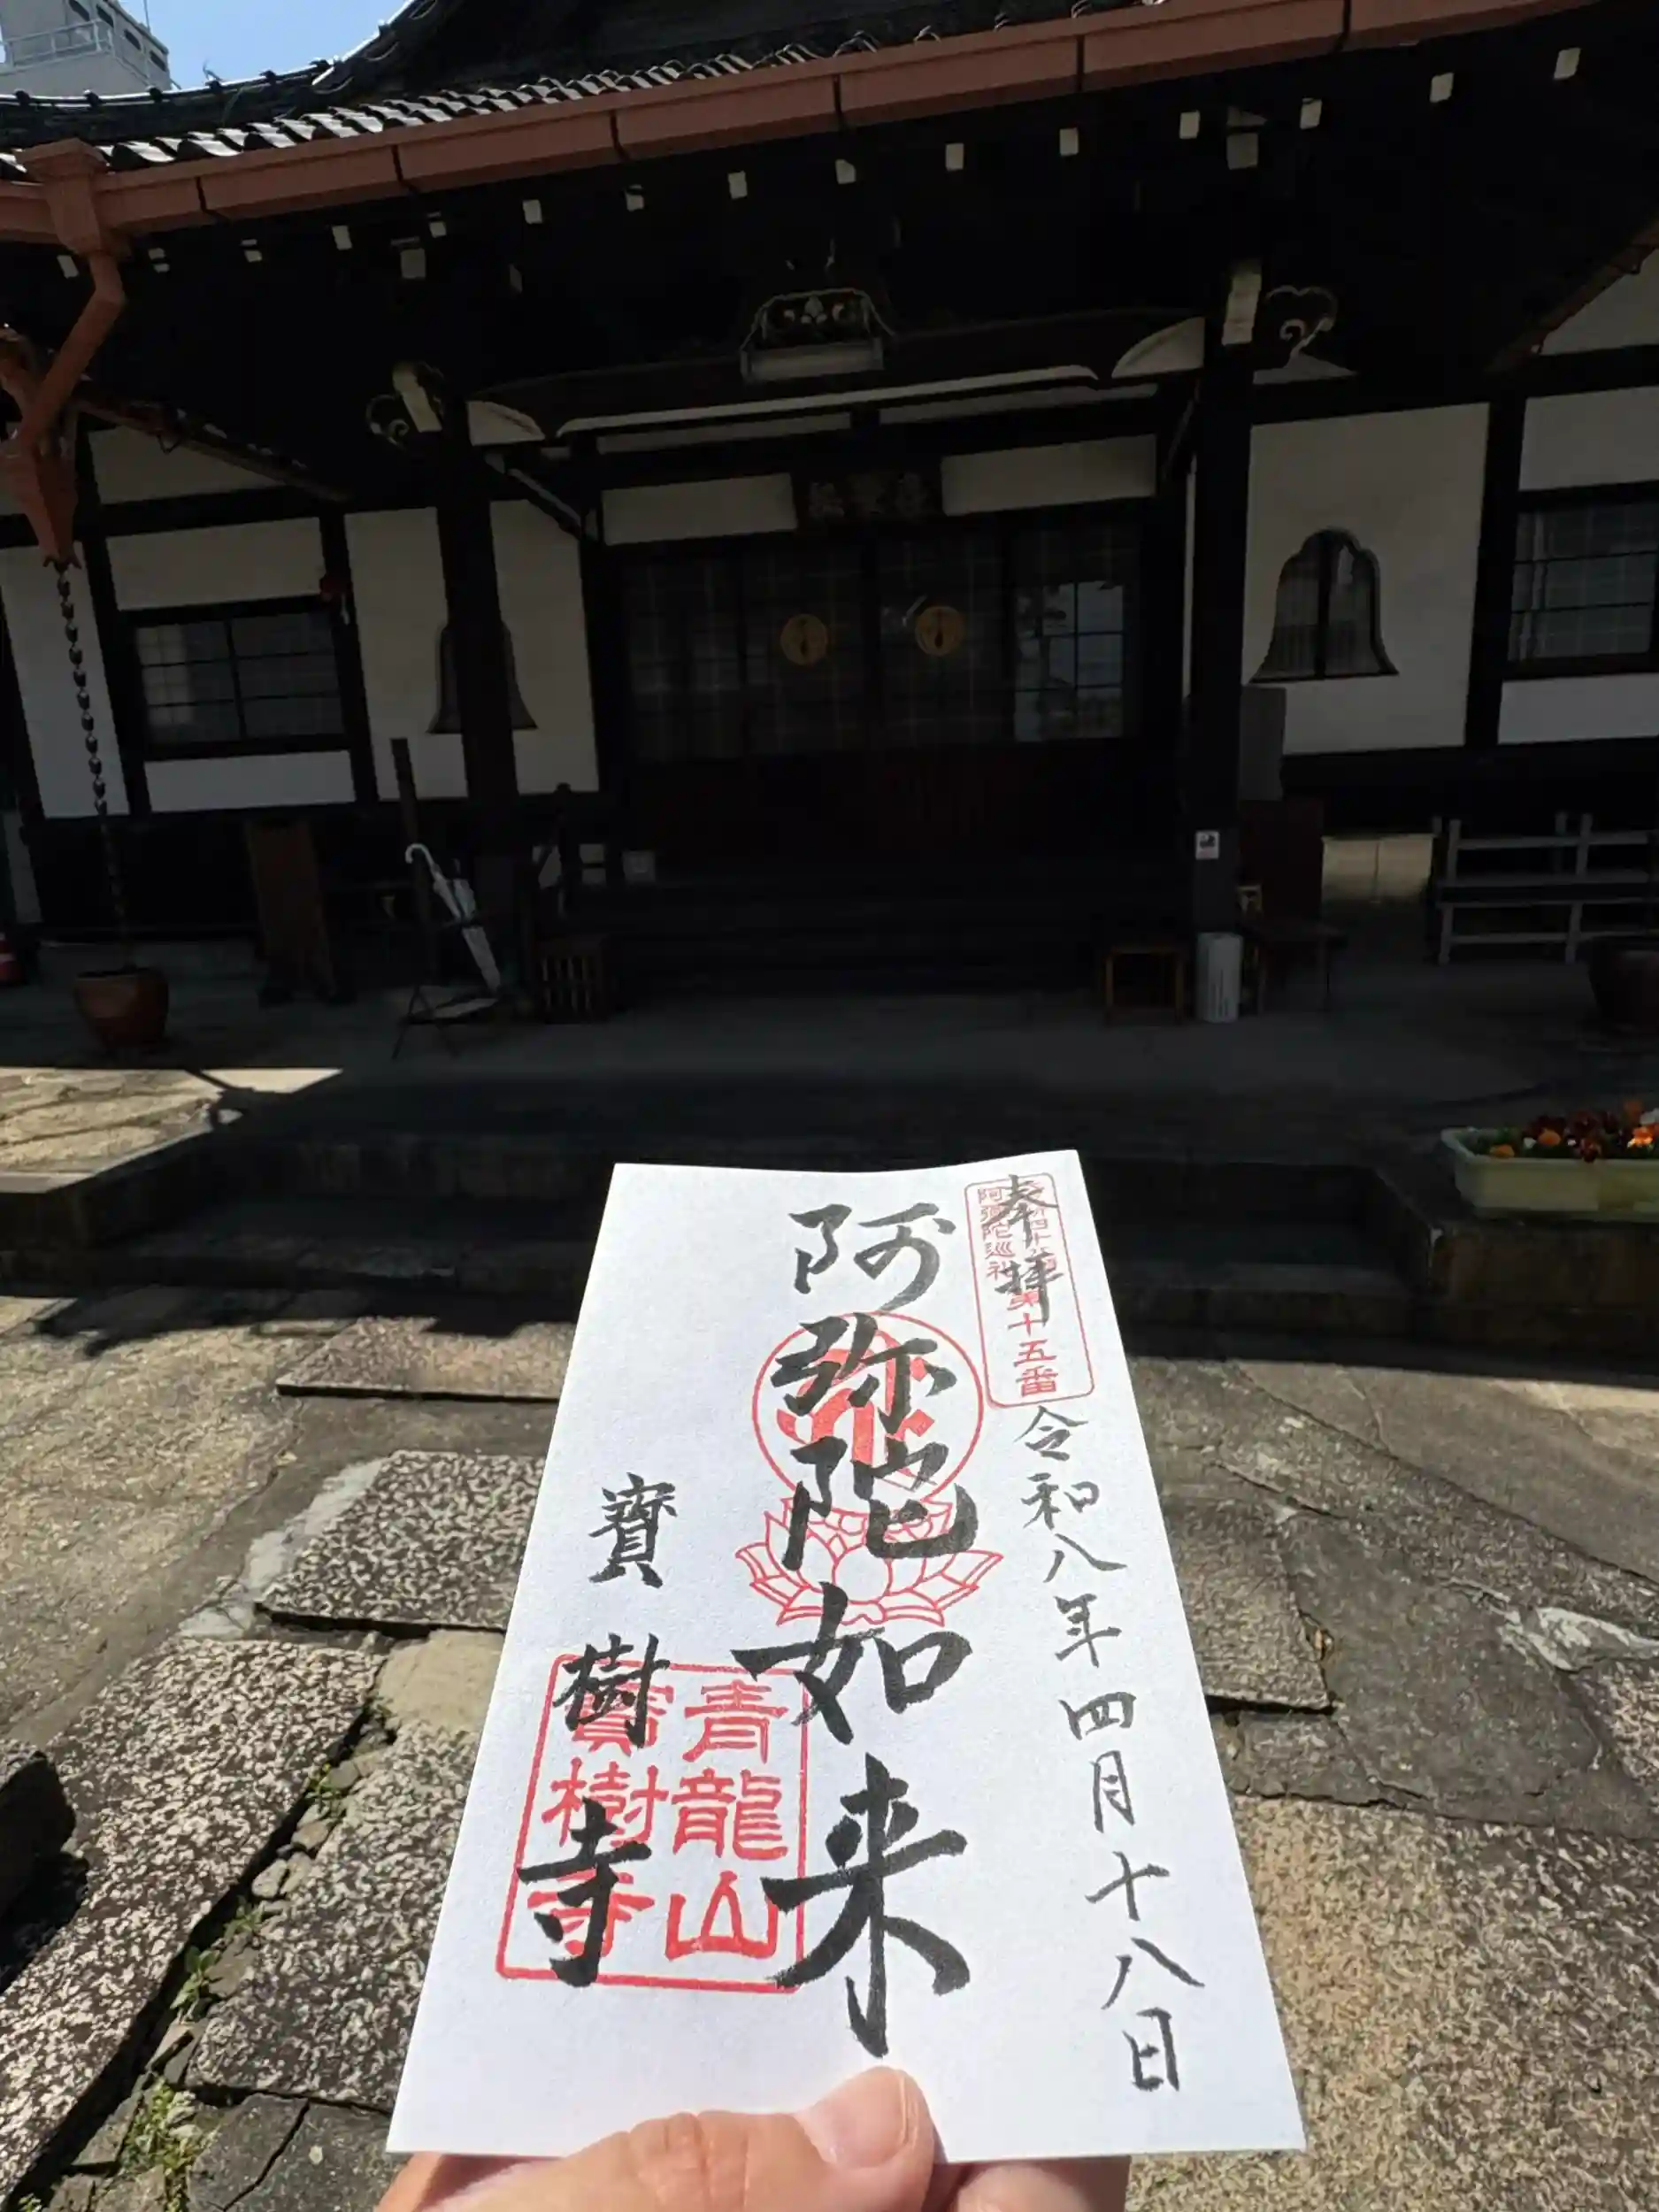 奉拝
阿弥陀巡礼
第十五番
令和八年四月十八日
阿弥陀如来
寶樹寺
青龍山
寶樹寺